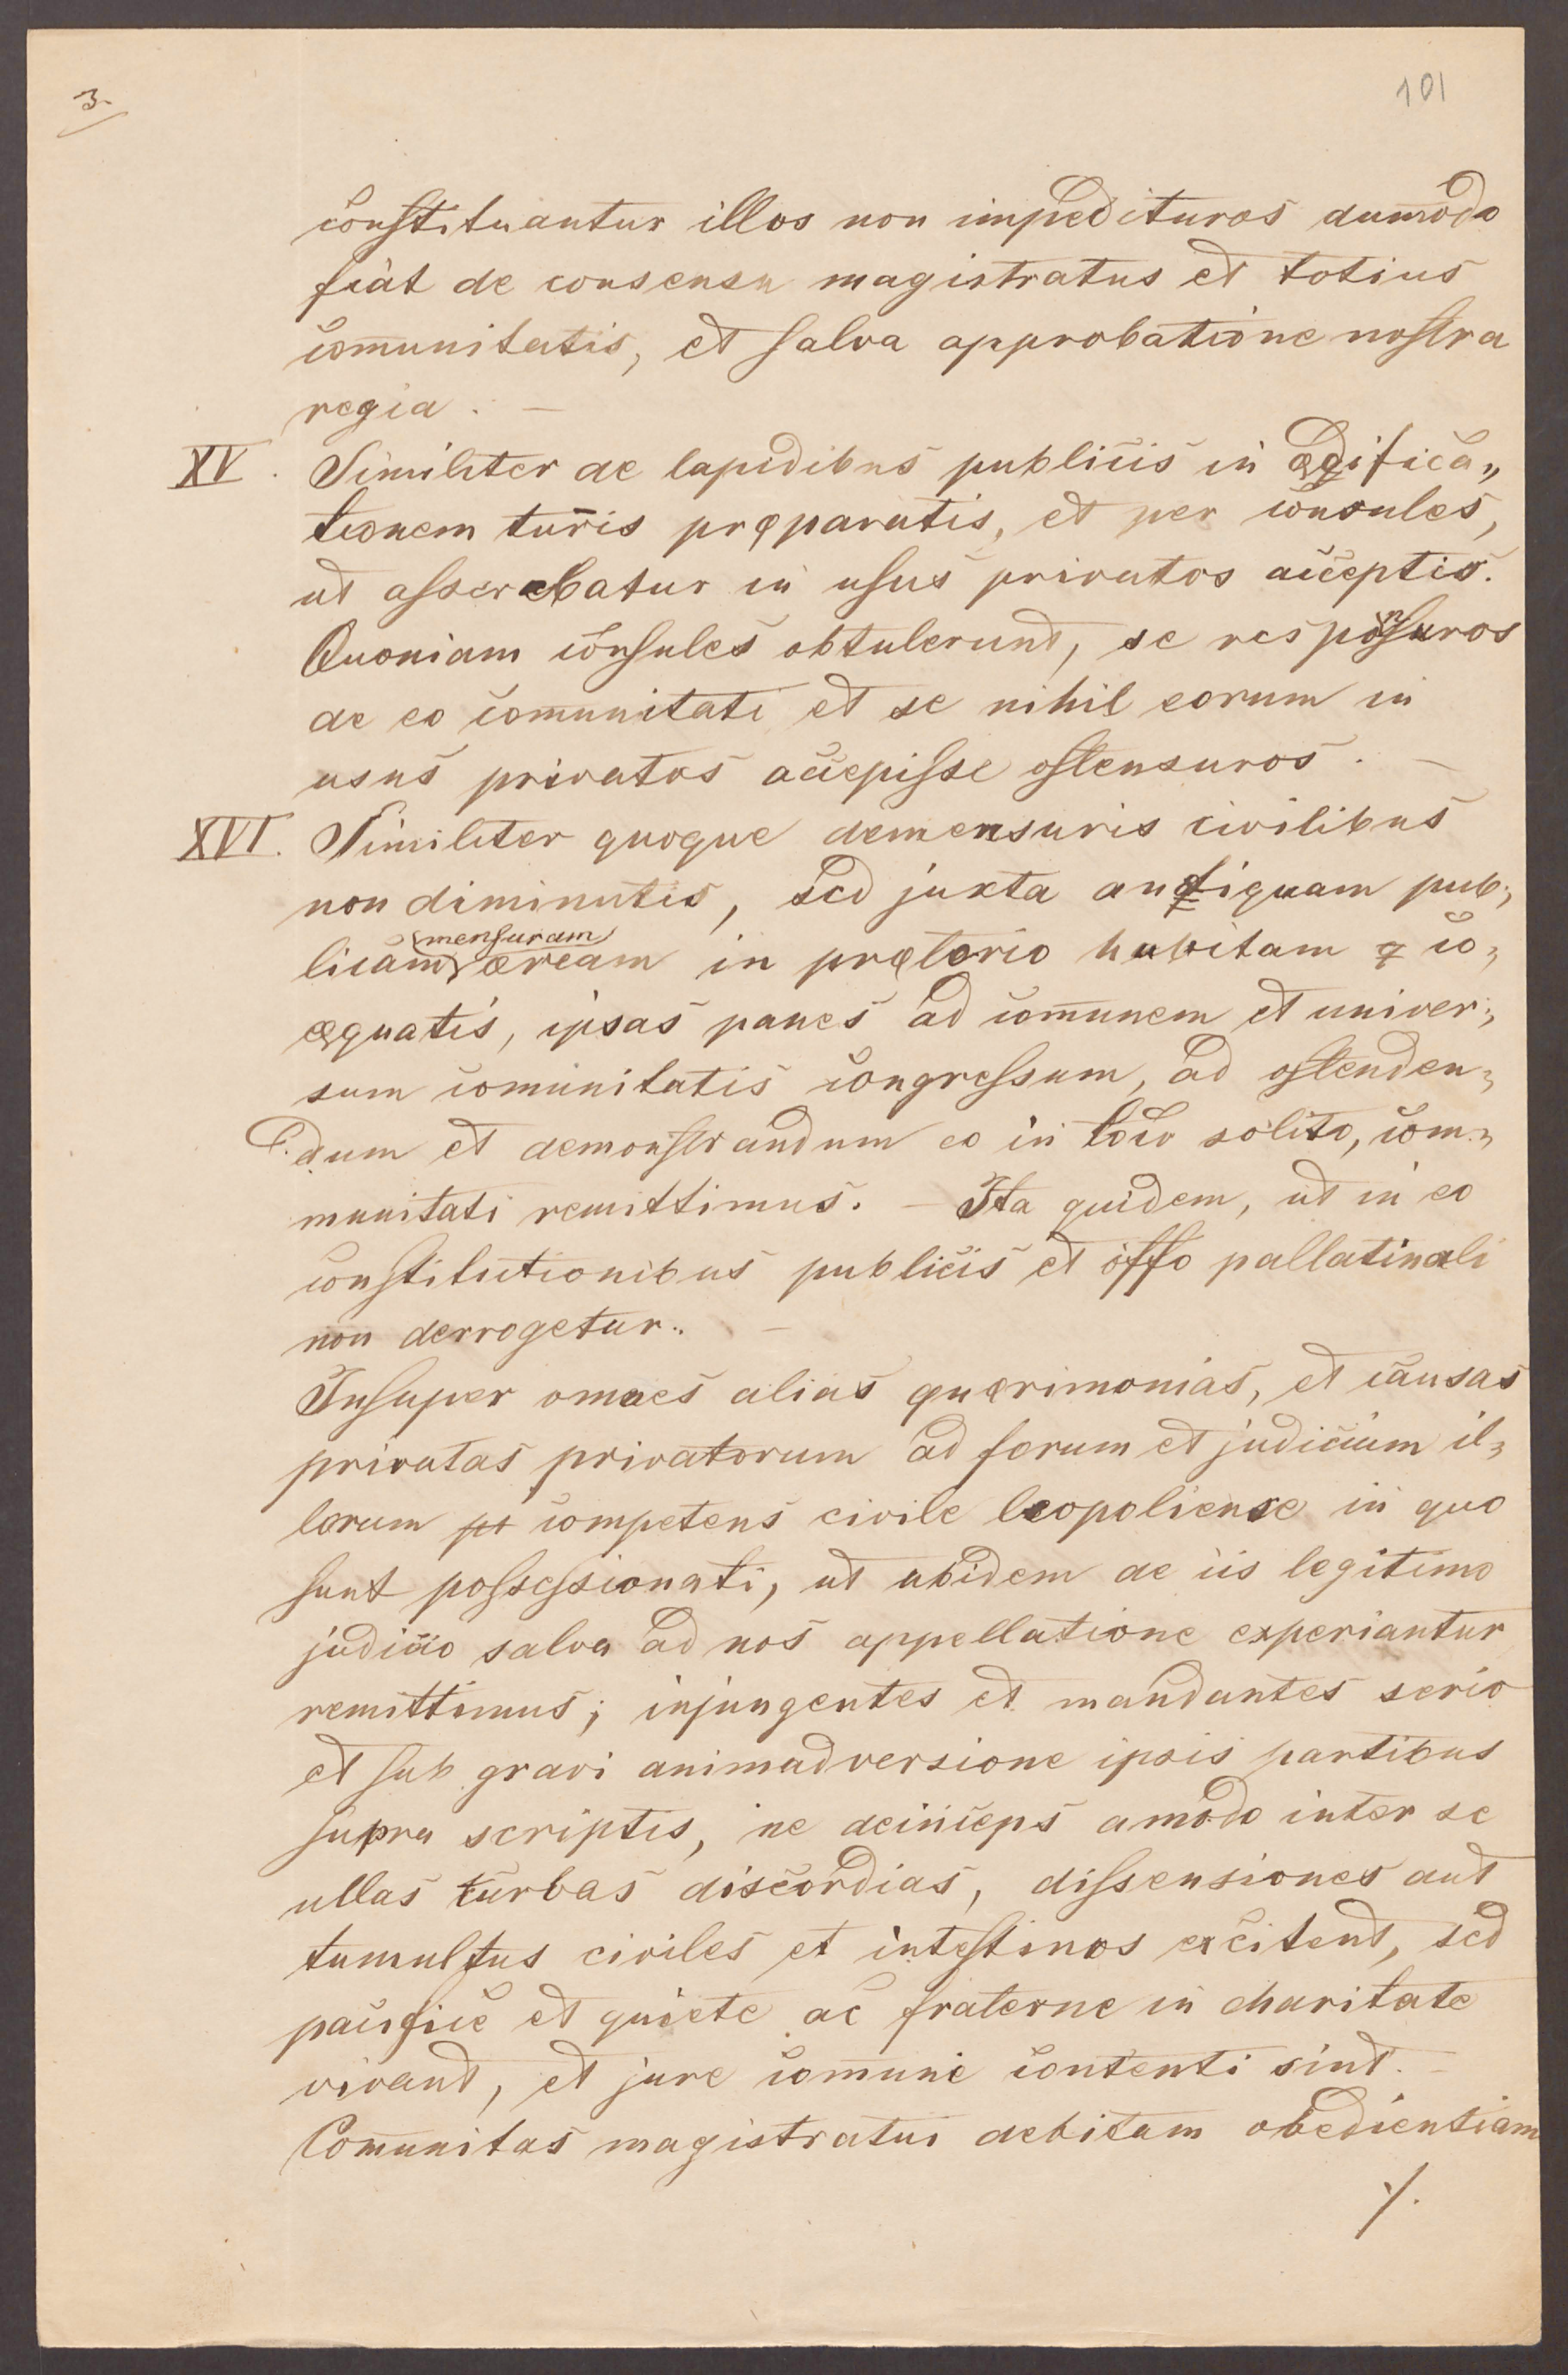 3.
101
constituantur illos non impedituros dummodo
fiat de consensu magistratus et totius
com̄unitatis, et salva approbatione nostra
regia. —
XV. Similiter de lapidibus publicis in ædifica„
tionem turris pręparatis, et per consules,
ut asserebatur in usus privatos acceptis.
Quoniam consules obtulerunt, se responsuros
de eo com̄unitati et se nihil eorum in
usus privatos accepisse ostensuros. —
XVI. Similiter quoque demensuris civilibus
non diminutis, sed juxta antiquam pub„
mensuram
licam æream in prętorio habitam co„
æquatis, ipsas panes ad com̄unem et univer„
sum com̄unitatis congressum, ad ostenden„
dum et demonstrandum eo in loco solito, com„
munitati remittimus. — Ita quidem, ut in eo
constitutionibus publicis et offo pallatinali
non derrogetur. —
Insuper omnes alias querimonias, et causas
privatas privatorum ad forum et judicium il„
lorum competens civile leopoliense in quo
sunt possessionati, ut ubidem de iis legitimo
judicio salva ad nos appellatione experiantur
remittimus; injungentes et mandantes serio
et sub gravi animadversione ipsis partibus
supra scriptis, ne deinceps amodo inter se
ullas turbas discordias, dissensiones aut
tumultus civiles et intestinos excitent, sed
pacifice et quiete ac fraterne in charitate
vivant, et jure com̄uni contenti sint. —
Com̄unitas magistratui debitam obedientiam
./.